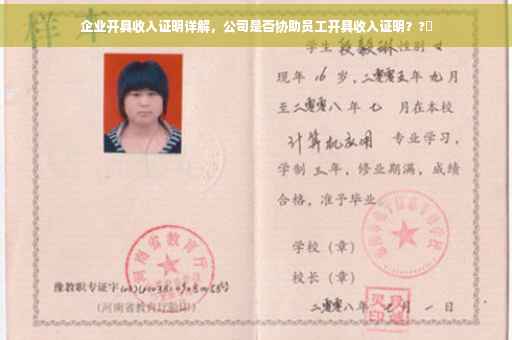 企业开具收入证明详解，公司是否协助员工开具收入证明？?
样本
学生段毅琳性别女
现年16岁，二零零五年九月
至二零零八年七月在本校
计算机应用 专业学习，
学制三年，修业期满，成绩
合格，准予毕业
学校（章）
校长（章）
二零零八年七月一日
河南省教育厅
豫教职专证字
(河南省教育厅验印)